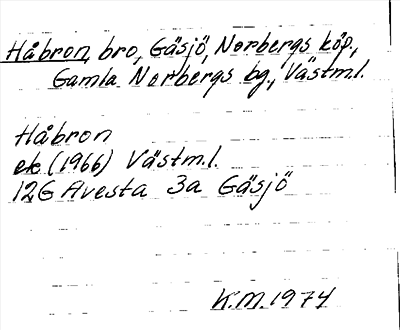 Håbron, bro, Gäsjö, Norbergs köp.,
Gamla Norbergs bg., Västml.
Håbron
ek (1966) Västml.
12G Avesta 3a Gäsjö
K.M. 1974